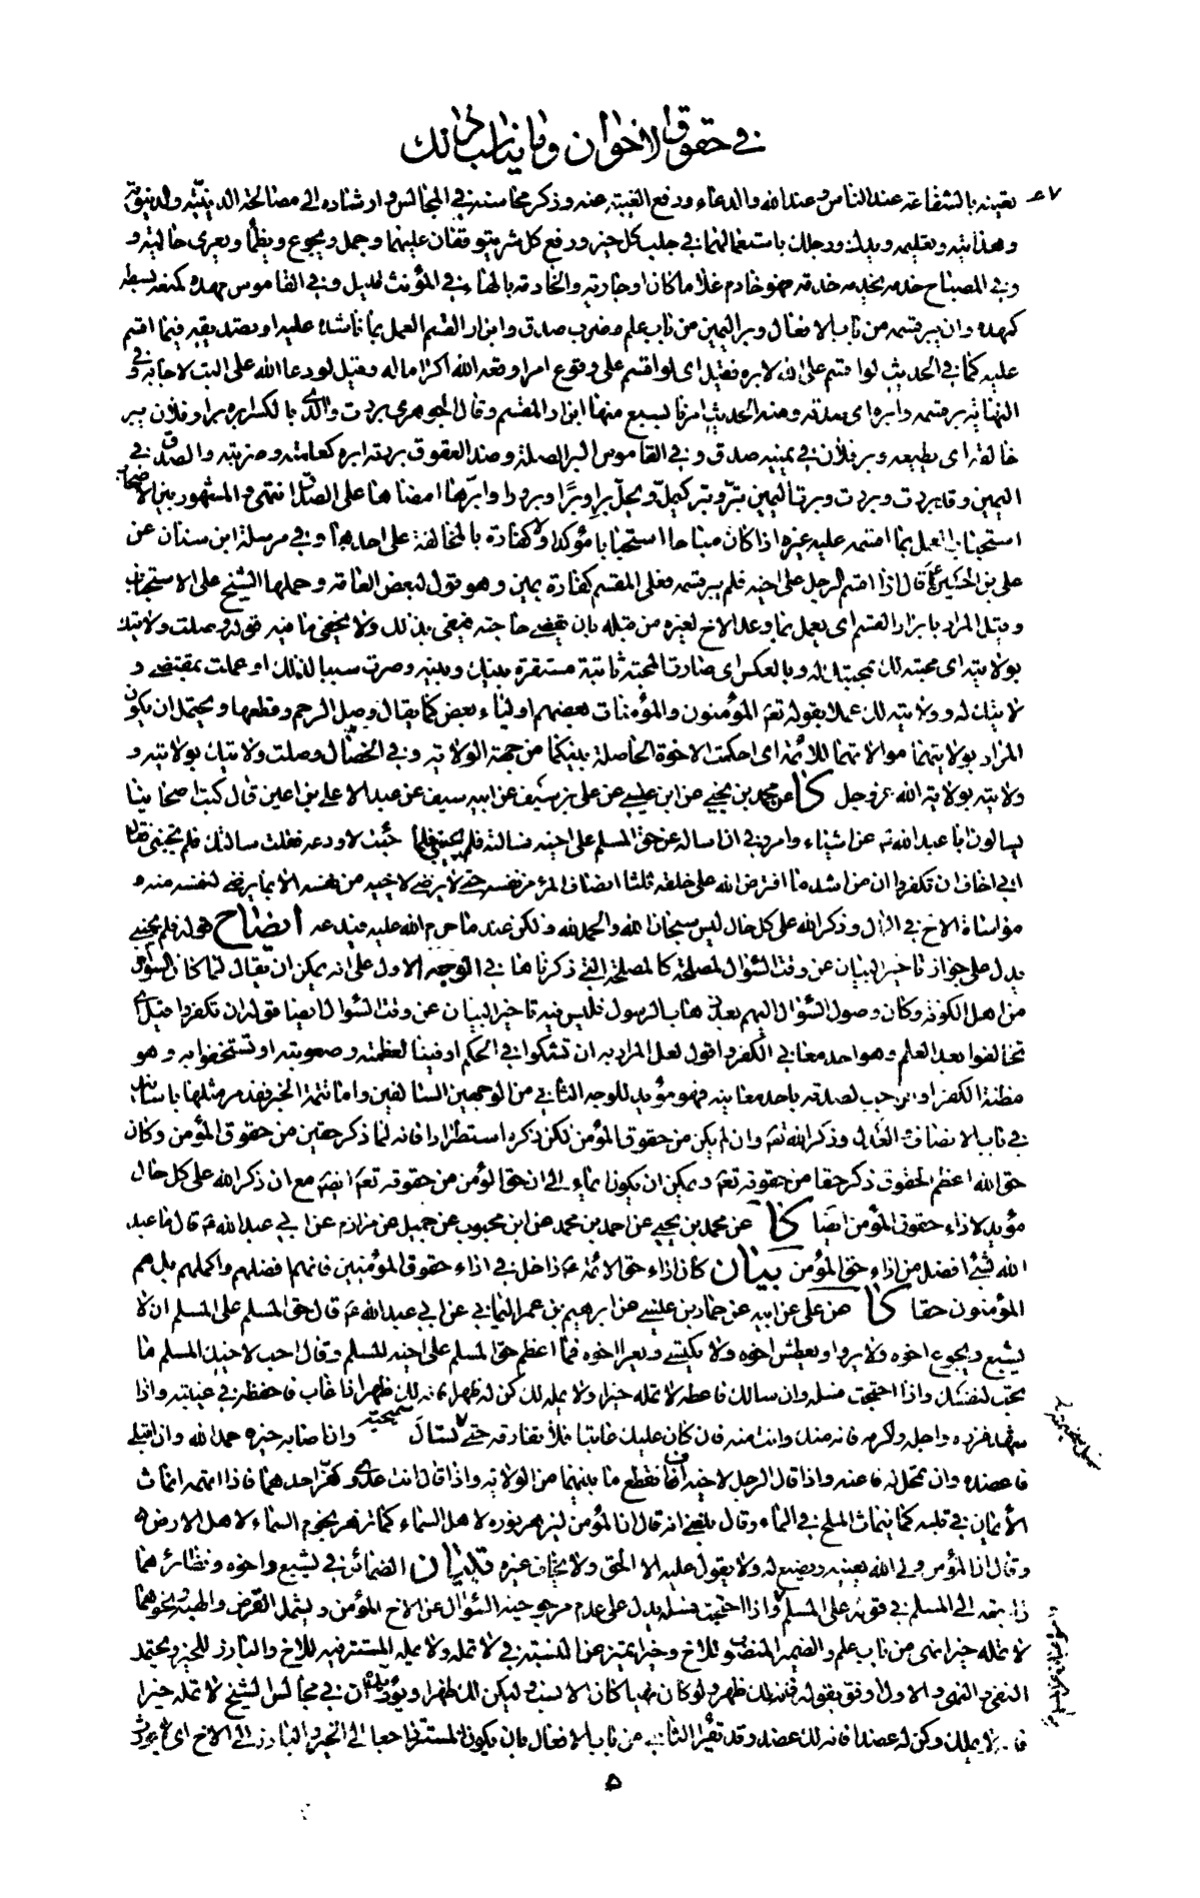 في حقوق الاخوان وما يناسب ذلك
٧٤ يعينه بالشفاعة عند الناس وعند الله والدعاء ودفع الغيبة عنه وذكر محاسنه في المجالس وارشاده الى مصالحه الدينية والدنيوية
وهدايته وتعليمه ويدك ورجلك باستعمالهما في جلب كل خير ودفع كل شر يتوقفان عليهما وجمل ويجوع ويظمأ ويعرى حالية و
وفي المصباح خدمه يخدمه خدمة فهو خادم غلاما كان او جارية والخادمة بالهاء في المؤنث قليل وفي القاموس مهده كمنعه بسطه
كمهده وان يبر قسمه من باب الافعال وبر اليمين من باب علم وضرب صدق وابرار القسم العمل بما ناشده عليه او تصديقه فيما اقسم
عليه كما في الحديث لو اقسم على الله لابره فقيل اى لو اقسم على وقوع امر اوقعه الله اكراما له وقيل لو دعا الله على البت لاجابه وفي
النهاية بر قسمه وابره اى صدقه ومنه الحديث امرنا بسبع منها ابرار المقسم وقال الجوهرى بررت والدى بالكسر ابره برا وفلان يبر
خالقه اى يطيعه وبر فلان في يمينه صدق وفي القاموس البر الصلة وضد العقوق بررته ابره كعلمته وضربته والصدق في
اليمين وقد بررت وبررت وبرت اليمين تبر وتبر كيمل ويحل برا وبرا وبرورا وابرها امضاها على الصدق انتهى والمشهور بين الاصحاب
استحباب العمل بما اقسمه عليه غيره اذا كان مباحا استحبابا مؤكدا ولا كفارة بالمخالفة على احدهما وفي مرسلة ابن سنان عن
على بن الحسين ع قال اذا اقسم الرجل على اخيه فلم يبر قسمه فعلى المقسم كفارة يمين وهو قول لبعض العامة وحملها الشيخ على الاستحباب
وقيل المراد بابرار القسم اى يعمل بما وعد الاخ لغيره من قبله بان يقضى حاجته فيفى بذلك ولا يخفى ما فيه قوله وصلت ولايتك
بولايته اى محبته لك بمحبتك له وبالعكس اى صارت المحبة ثابتة مستقرة بينك وبينه وصرت سببا لذلك او عملت بمقتضى و
لايتك له وولايته لك عملا بقوله تع المؤمنون والمؤمنات بعضهم اولياء بعض كما يقال وصل الرحم وقطعها ويحتمل ان يكون
المراد بولايتهما موالاتهما للائمة اى احكمت الاخوة الحاصلة بينكما من جهة الولاية وفي الخصال وصلت ولايتك بولايته و
ولايته بولاية الله عز وجل كا عن محمد بن يحيى عن ابن عيسى عن على بن سيف عن ابيه سيف عن عبد الاعلى بن اعين قال كتب اصحابنا
يسالون ابا عبد الله ع عن اشياء وامروني ان اساله عن حق المسلم على اخيه فسالته فلم يجبني فلما جئت لاودعه فقلت سالتك فلم تجبني فقال
انى اخاف ان تكفروا ان من اشد ما افترض الله على خلقه ثلثا انصاف المرء من نفسه حتى لا يرضى لاخيه من نفسه الا بما يرضى لنفسه منه و
مؤاساة الاخ في المال وذكر الله على كل حال ليس سبحان الله والحمد لله ولكن عند ما حرم الله عليه فيدعه ايضاح قوله فلم يجبني
يدل على جواز تاخير البيان عن وقت السؤال لمصلحة كالمصلحة التي ذكرناها في الوجه الاول على انه يمكن ان يقال لما كان السؤال
من اهل الكوفة وكان وصول السؤال اليهم بعد ذهاب الرسول فليس فيه تاخير البيان عن وقت السؤال ايضا قوله ان تكفروا قيل اى
تخالفوا بعد العلم وهو احد معاني الكفر واقول لعل المراد به ان تشكوا في الحكم او فينا لعظمته وصعوبته او تستخفوا به وهو
مظنة الكفر او موجب لصدقه باحد معانيه فهو مؤيد للوجه الثاني من الوجهين السالفين واما تتمة الخبر فقد مر مثلها باسانيد
في باب الانصاف والعدل وذكر الله تع وان لم يكن من حقوق المؤمن لكن ذكره استطرادا فانه لما ذكر حقين من حقوق المؤمن وكان
حق الله اعظم الحقوق ذكر حقا من حقوقه تع ويمكن ان يكون ايماء الى ان حق المؤمن من حقوقه تع ايضا مع ان ذكر الله على كل حال
مؤيد لاداء حقوق المؤمن ايضا كا عن محمد بن يحيى عن احمد بن محمد عن ابن محبوب عن جميل عن مرازم عن ابي عبد الله ع قال ما عبد
الله بشئ افضل من اداء حق المؤمن بيان كان اداء حق الائمة ع داخل في اداء حقوق المؤمنين فانهم افضلهم واكملهم بل هم
المؤمنون حقا كا عن على عن ابيه عن حماد بن عيسى عن ابرهيم بن عمر اليماني عن ابي عبد الله ع قال حق المسلم على المسلم ان لا
يشبع ويجوع اخوه ولا يروا ويعطش اخوه ولا يكتسى ويعرا اخوه فما اعظم حق المسلم على اخيه المسلم وقال احب لاخيك المسلم ما
تحب لنفسك واذا احتجت فسله وان سالك فاعطه لا تمله خيرا ولا يمله لك كن له ظهرا فانه لك ظهر اذا غاب فاحفظه في غيبته واذا
شهد فزره واجله واكرمه فانه منك وانت منه فان كان عليك عاتبا فلا تفارقه حتى تسأل سميحته وان اصابه خير فاحمد الله وان ابتلى
فاعضده وان تمحل له فاعنه واذا قال الرجل لاخيه اف انقطع ما بينهما من الولاية واذا قال انت عدوى كفر احدهما فاذا اتهمه انماث
الايمان في قلبه كما ينماث الملح في الماء وقال بلغني انه قال ان المؤمن ليزهر نوره لاهل السماء كما تزهر نجوم السماء لاهل الارض
وقال ان المؤمن ولى الله يعينه ويصنع له ولا يقول عليه الا الحق ولا يخاف غيره تبيان الضمائر في يشبع واخوه ونظائرهما
راجعة الى المسلم في قوله على المسلم واذا احتجت فسله يدل على عدم مرجوحية السؤال عن الاخ المؤمن ويشمل القرض والهبة ونحوهما
لا تمله خيرا نهى من باب علم والضمير المنصوب للاخ وخيرا تميز عن النسبة في لا تمله ولا يمله المستتر فيه للاخ والبارز للخير ويحتمل
النفى والنهى والاول اوفق بقوله فانه لك ظهر ولو كان نهيا كان الانسب وليكن لك ظهرا ويؤيده ان في مجالس الشيخ لا تمله خيرا
فانه لا يملك وكن له عضدا فانه لك عضد وقد تقرا الثاني من باب الافعال بان يكون المستتر راجعا الى الخير والبارز الى الاخ اى